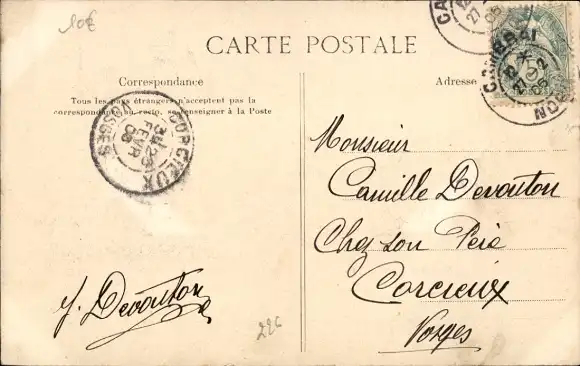 10€
CARTE POSTALE
Correspondance
Tous les pays étrangers n'acceptent pas la
correspondance au recto, se renseigner à la Poste
Adresse
CORCIEUX
FEVR
08
VOSGES
27
Monsieur
Camille Devouton
Chez son Père
Corcieux
Vosges
J. Devouton
226